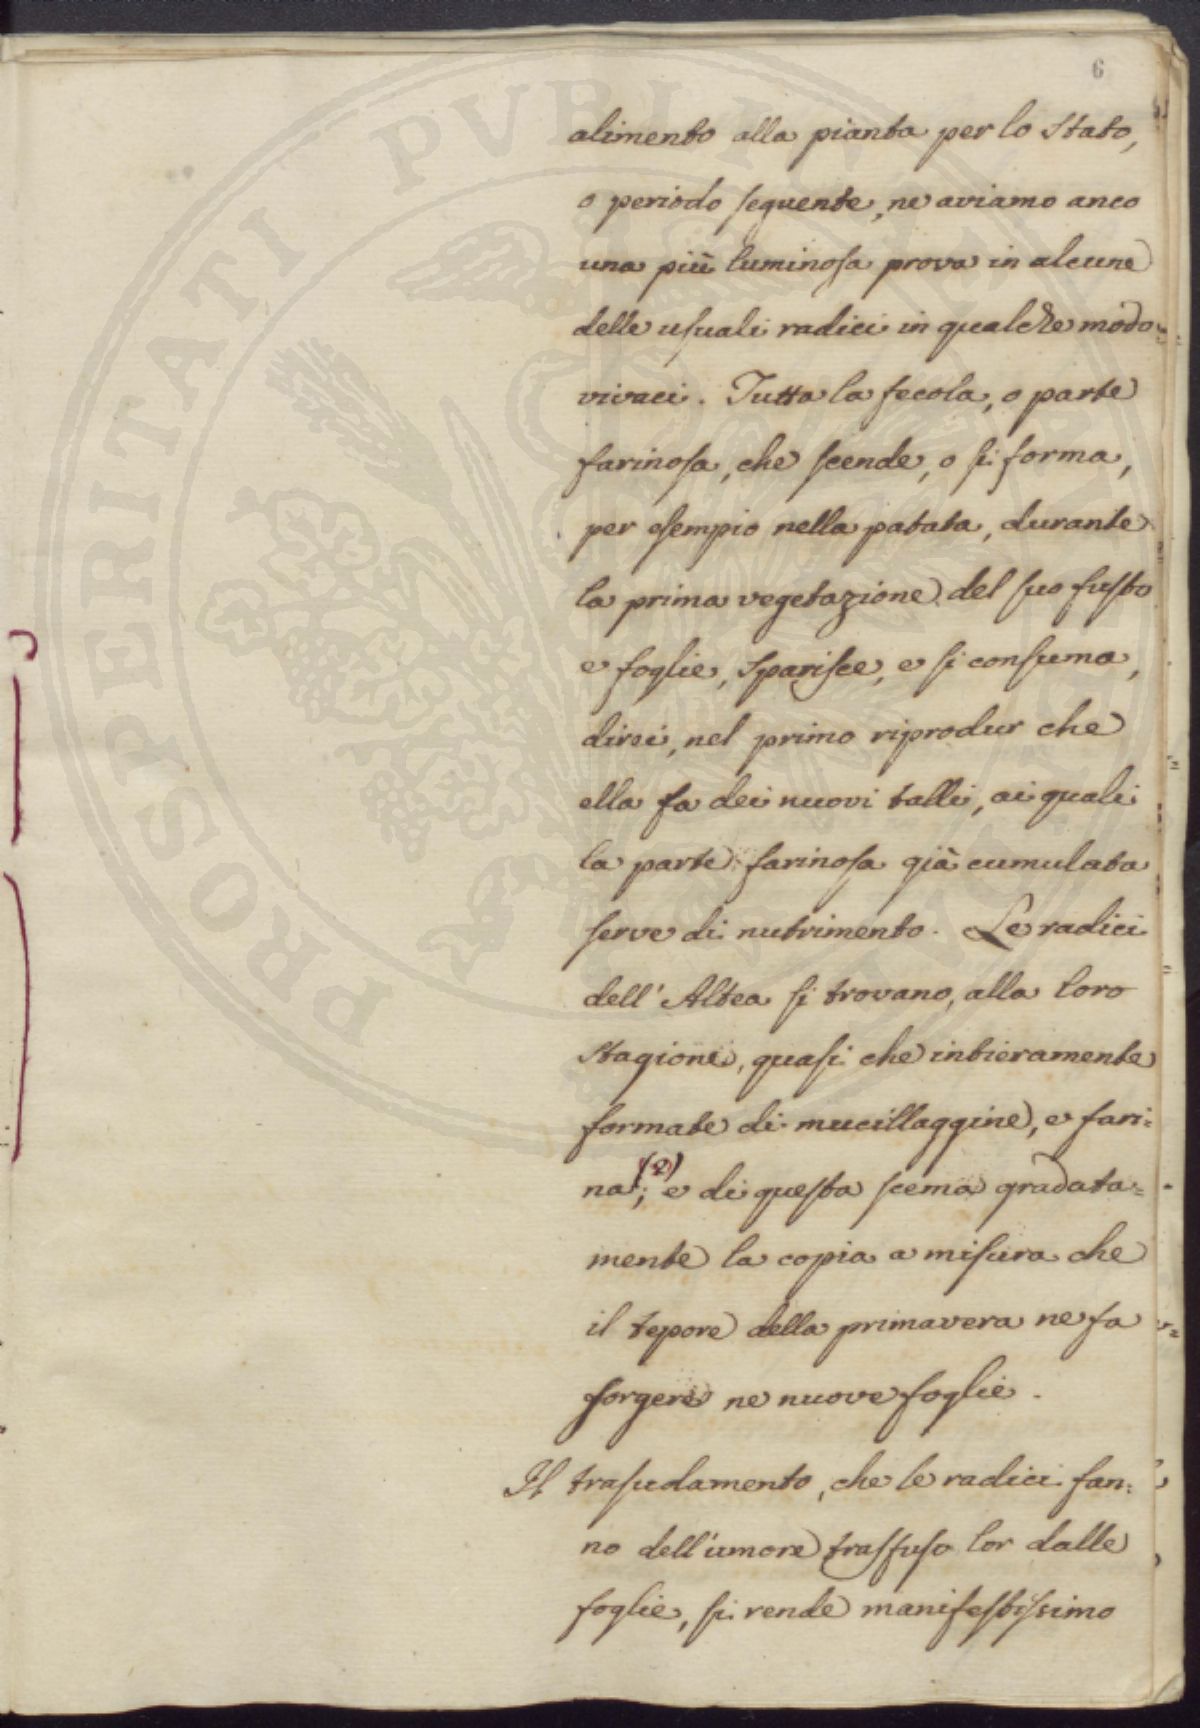 6
alimento alla pianta per lo stato,
o periodo seguente, ne aviamo anco
una più luminosa prova in alcune
delle usuali radici in qualche modo
vivaci. Tutta la fecola, o parte
farinosa, che scende, o si forma,
per esempio nella patata, durante
la prima vegetazione del suo fusto
e foglie, sparisce, e si consuma,
direi, nel primo riprodur che
ella fa dei nuovi talli, ai quali
la parte farinosa già cumulata
serve di nutrimento. Le radici
dell' Altea si trovano, alla loro
stagione, quasi che intieramente
formate di mucillaggine, e fari=
na (2); e di questa scema gradata=
mente la copia a misura che
il tepore della primavera ne fa
sorgere ne nuove foglie.
Il trasudamento, che le radici fan=
no dell'umore trasfuso lor dalle
foglie, si rende manifestissimo
PROSPERITATI PVBLICAE